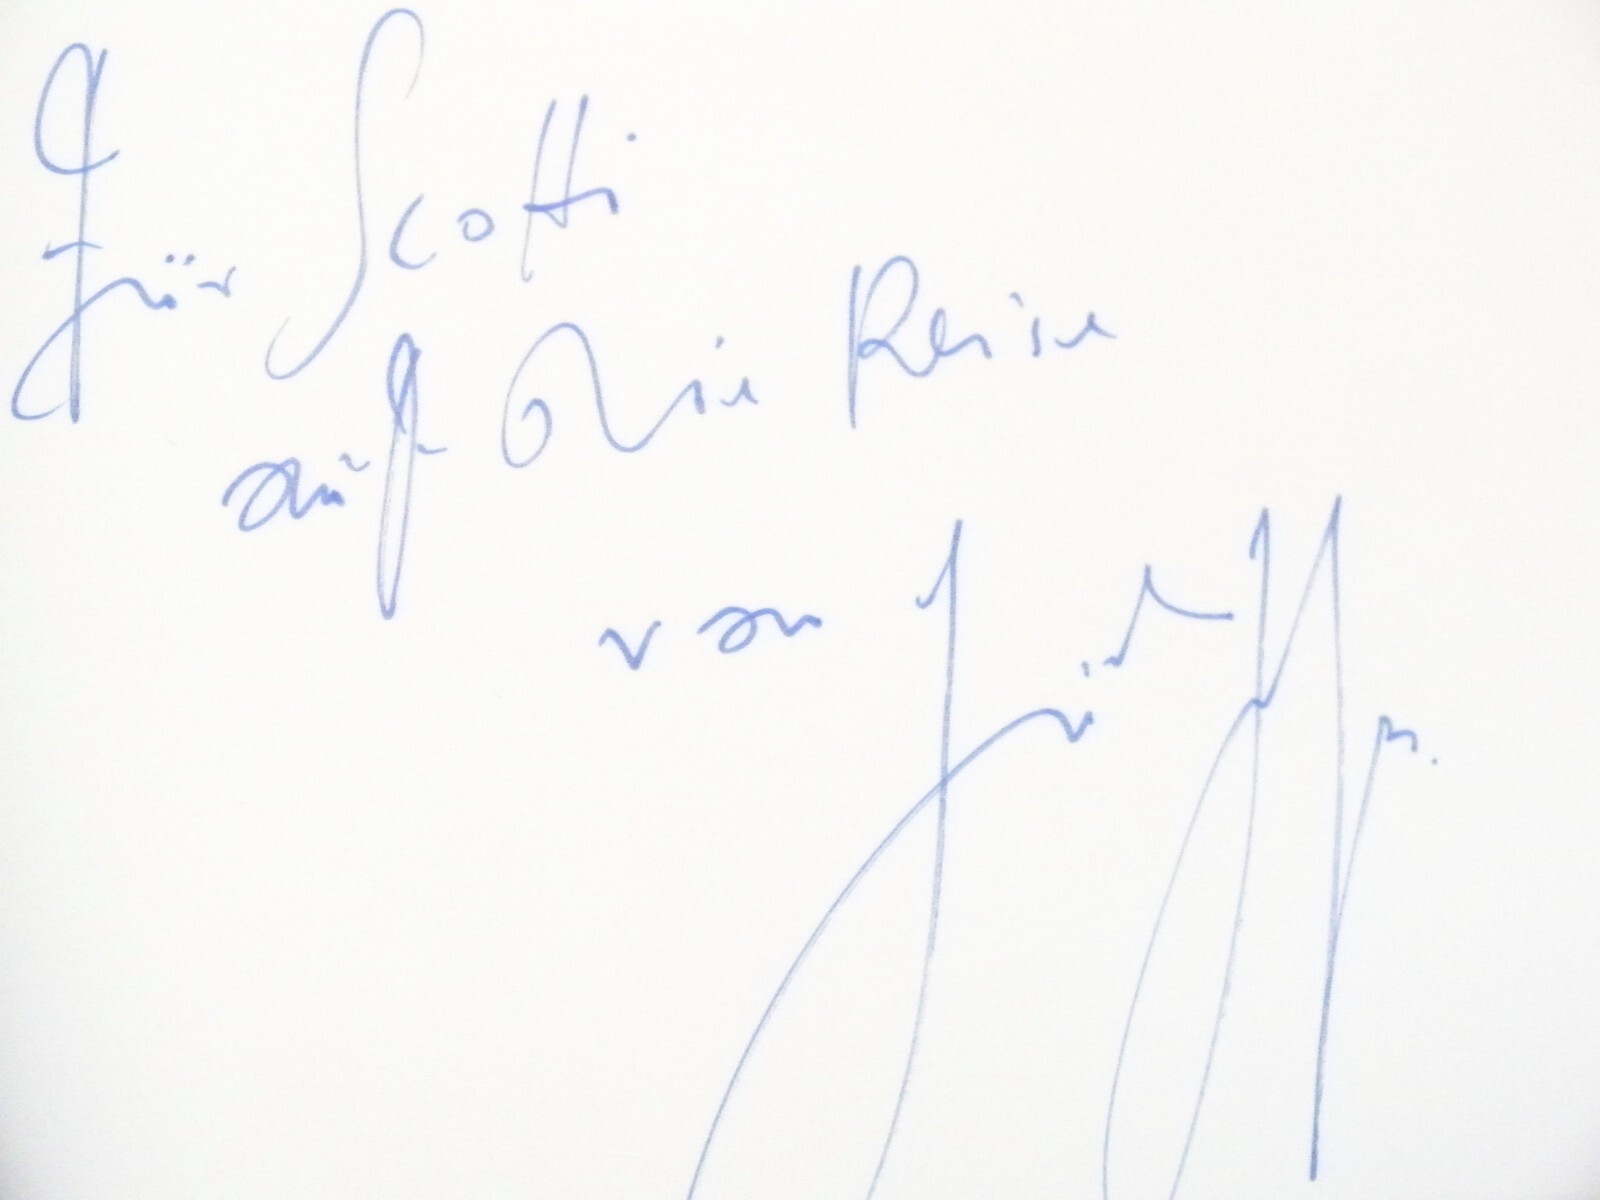 Für Scotti
auf die Reise
von